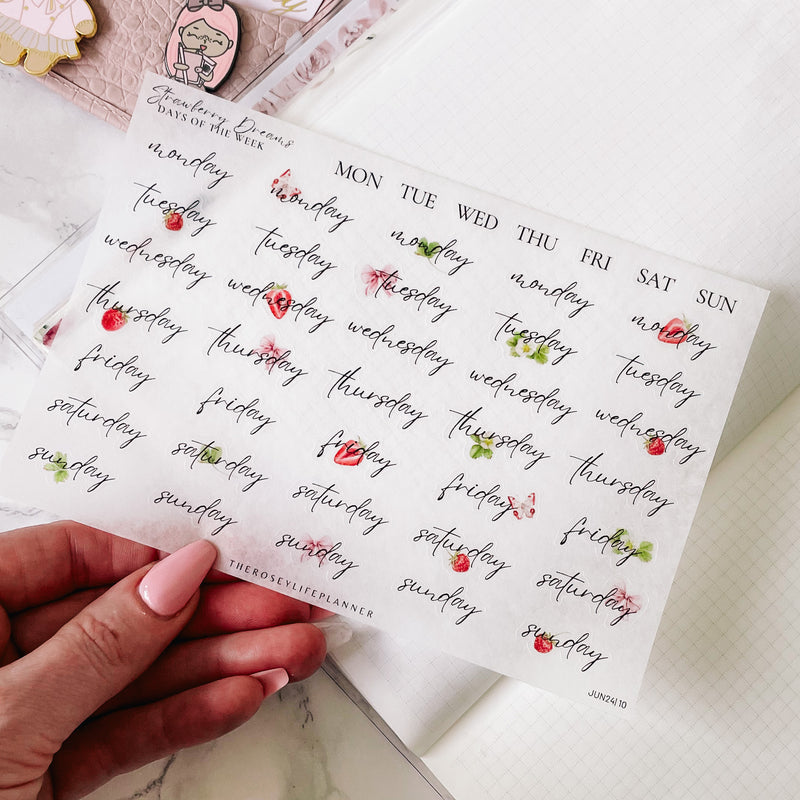 Strawberry Dreams
DAYS OF THE WEEK
MON TUE WED THU FRI SAT SUN
monday
tuesday
wednesday
thursday
friday
saturday
sunday
monday
tuesday
wednesday
thursday
friday
saturday
sunday
monday
tuesday
wednesday
thursday
friday
saturday
sunday
monday
tuesday
wednesday
thursday
friday
saturday
sunday
monday
tuesday
wednesday
thursday
friday
saturday
sunday
THEROSEYLIFEPLANNER
JUN24|10